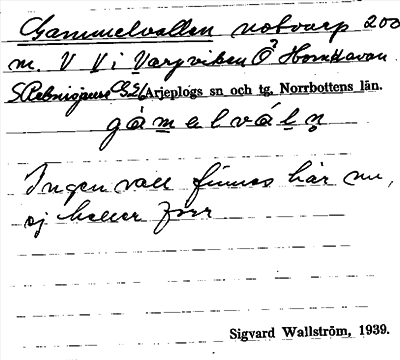 Gammelvallen notvarp 200
m. V V i Vargviken Hornavan
Arjeplogs sn och tg. Norrbottens län.
gámelválņ
Ingen vall finnes här nu,
ej heller förr
Sigvard Wallström, 1939.